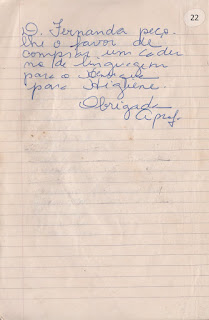 22
D. Fernanda peço-
lhe o favor de
comprar um cader
no de linguagem
para o
para Higiene.
Obrigada
A prof.